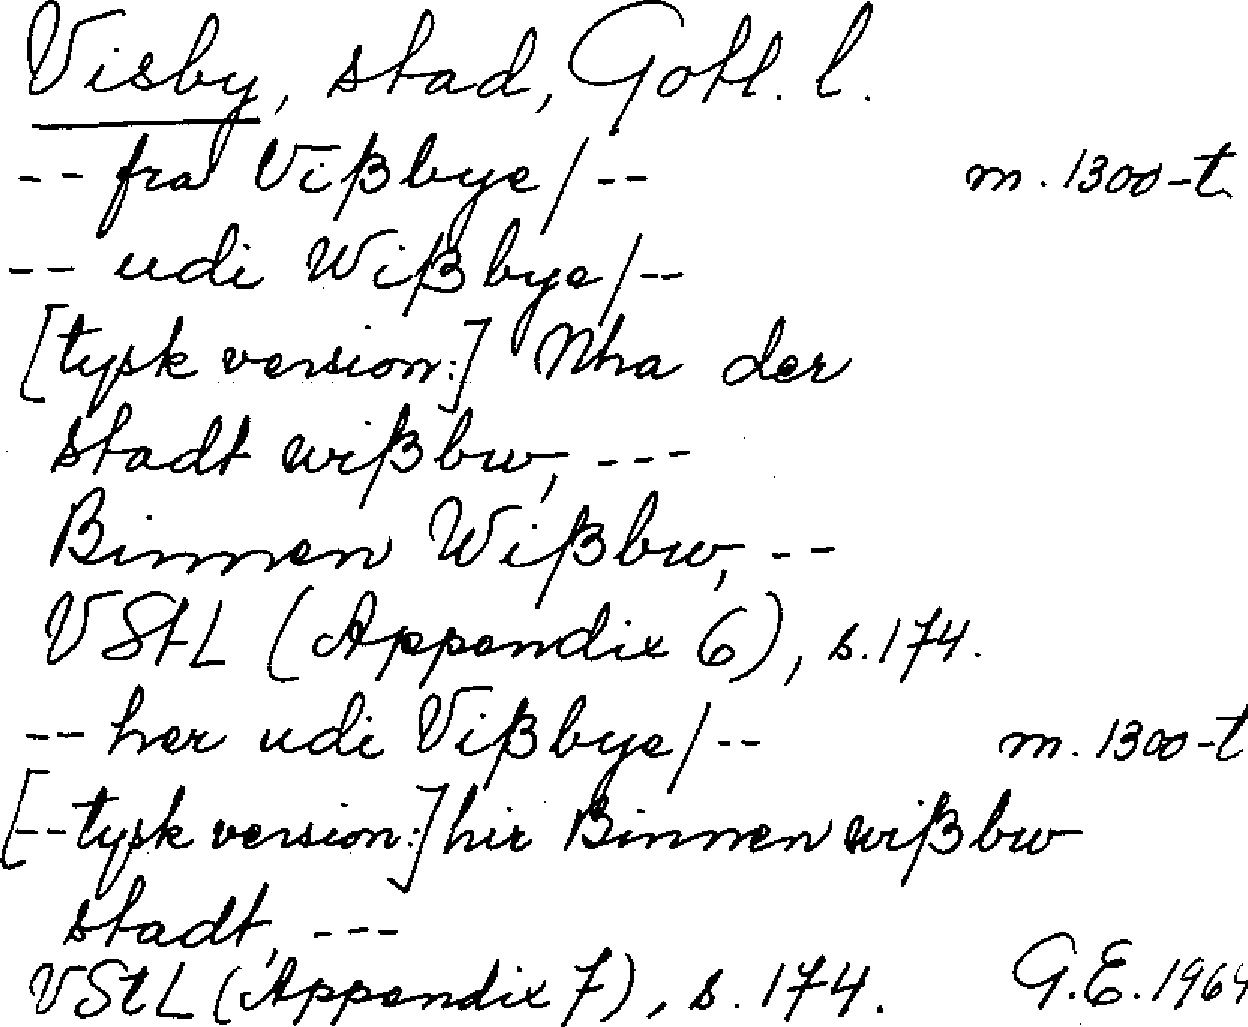 Visby, stad, Gotl. l.
-- fra Vißbye/-- m. 1300-t
-- udi Wißbye/--
[tysk version:] Nha der
stadt wißbw, ---
Binnen Wißbw, --
VStL (Appendix 6), s. 174.
-- her udi Vißbye/-- m. 1300-t
[-- tysk version:] hir Binnen wißbw
stadt, ---
VStL (Appendix 7), s. 174. G.E. 1964